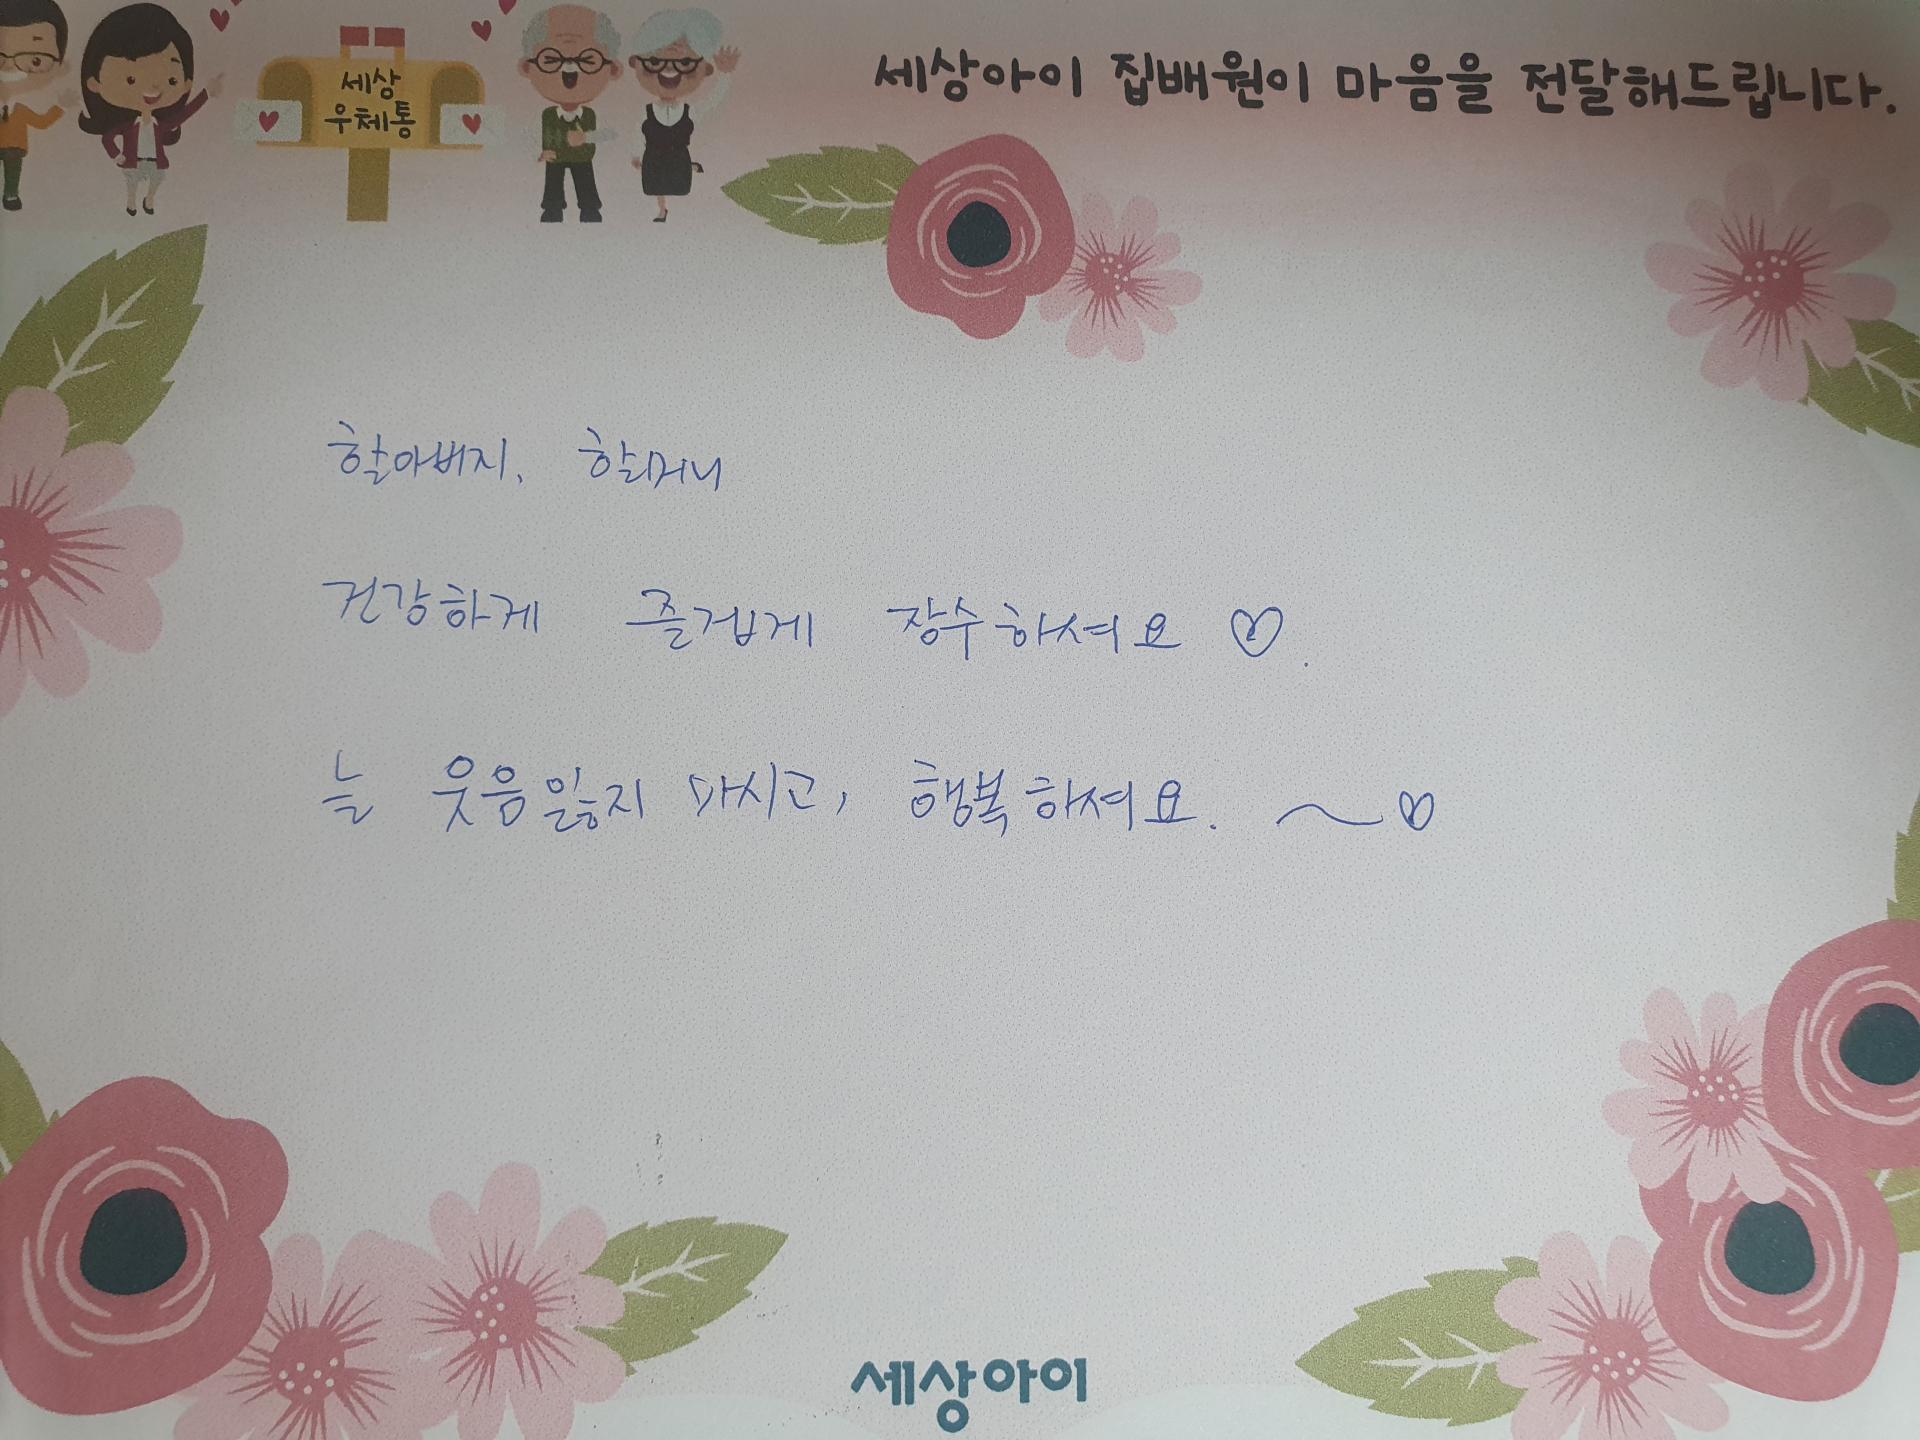 세상아이 집배원이 마음을 전달해드립니다.
세상
우체통
할아버지, 할머니
건강하게 즐겁게 장수하셔요 ♡.
늘 웃음잃지 마시고, 행복하셔요. ~♡
세상아이